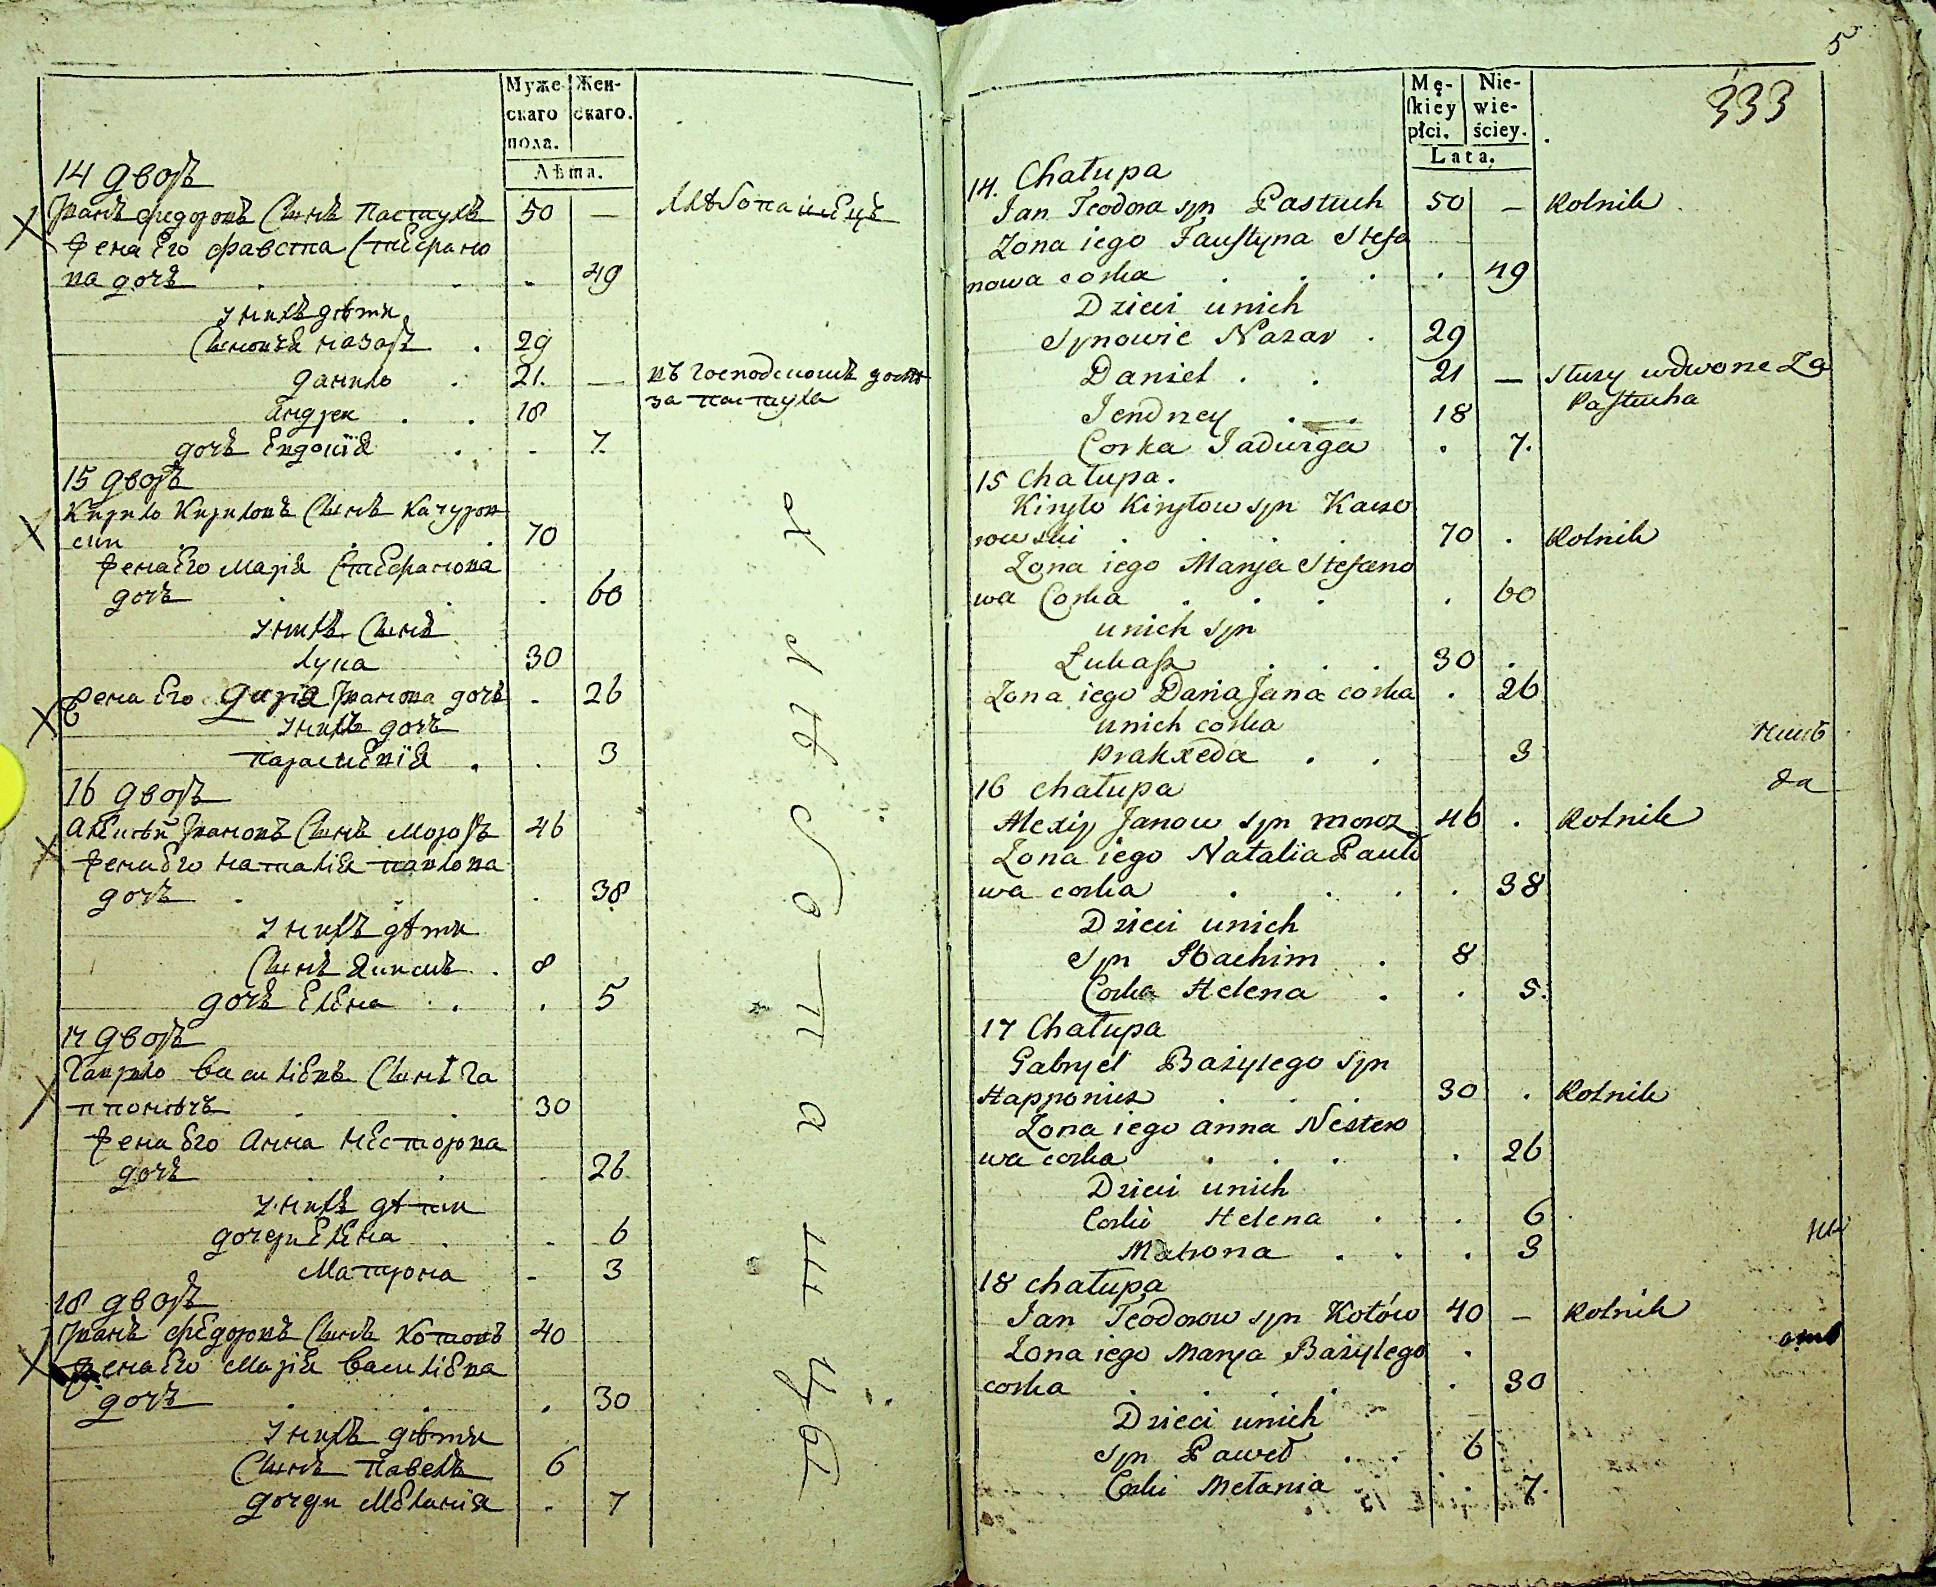 Муже
скаго
пола.
Жен-
скаго.
Лѣта.
14 дворъ
Иванъ Федоровъ Сынъ Пастухъ 50 — хлѣбопашецъ
Жена Его Фавста Стефано
ва дочь . . . 49
у нихъ дѣти
Сыновья Назаръ . 29
Данило . 21. — въ господскомъ дворѣ
за пастуха
Андрей . . 18
дочь Евдокія . . 7.
15 дворъ
Кирило Кириловъ Сынъ Качуров
ски . . . 70
Жена Его Марія Стефанова
дочь . . . 60
у нихъ Сынъ
Лука 30
Жена Его Дарія Иванова дочь . 26
у нихъ дочь
Параскевія . . 3
16 дворъ
Алексѣй Ивановъ Сынъ Морозъ 46
Жена Его Наталія Павлова
дочь . . . 38
у нихъ дѣти
Сынъ Якимъ . 8
дочь Елена . . . 5
17 дворъ
Гаврило Васильевъ Сынъ Га
ппоновъ . . 30
Жена Его Анна Несторова
дочь . . . 26
у нихъ дѣти
дочери Елена . . 6
Матрона . 3
18 дворъ
Иванъ Федоровъ Сынъ Котовъ 40
Жена Его Марія Васильева
дочь . . . 30
у нихъ дѣти
Сынъ Павелъ 6
дочери Меланія . 7
хлѣбопашцы
5
333
Mę-
skiey
płci.
Nie-
wie-
ściey.
Lata.
14. Chałupa
Jan Teodora syn Pastuch 50 — Rolnik
Zona iego Faustyna Stefa
nowa corka . . . . 49
Dzieci unich
Synowie Nazar . 29
Daniel . . 21 — służy wdworze Za
Pastucha
Jendrzey . . 18
Corka Jadwiga . 7.
15 Chałupa.
Kiryło Kiryłow syn Kaczo
rowski . . . 70 . Rolnik
Zona iego Marya Stefano
wa Corka . . . . 60
unich syn
Łukasz . . . 30 .
Zona iego Daria Jana corka . 26
unich corka
Prakxeda . . 3
16 chałupa
Alexiy Janow syn Moroz 46 . Rolnik
Zona iego Natalia Pawło
wa corka . . . . 38
Dzieci unich
syn Joachim . 8
Corka Helena . . 5.
17 Chałupa
Gabryel Bazylego syn
Happonius . . . 30 . Rolnik
Zona iego Anna Nestero
wa corka . . . . 26
Dzieci unich
Corki Helena . . 6
Matrona . . . 3
18 chałupa
Jan Teodorow syn Kotów 40 — Rolnik
Zona iego Marya Bazylego .
corka . . . . 30
Dzieci unich
syn Paweł . . . 6
Corki Melania . 7.